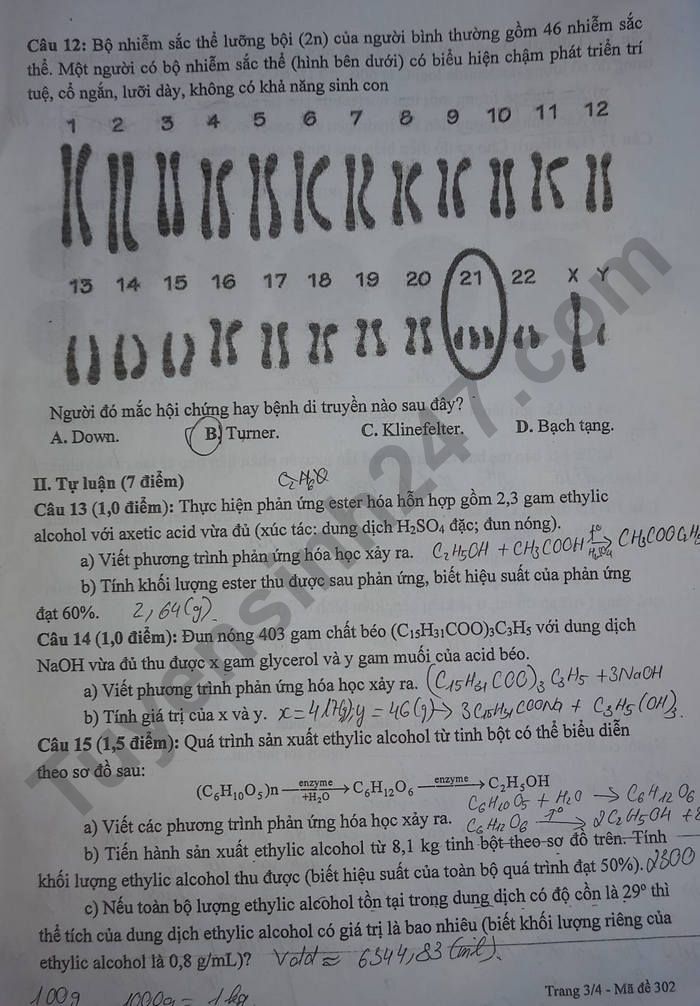 Câu 12: Bộ nhiễm sắc thể lưỡng bội (2n) của người bình thường gồm 46 nhiễm sắc
thể. Một người có bộ nhiễm sắc thể (hình bên dưới) có biểu hiện chậm phát triển trí
tuệ, cổ ngắn, lưỡi dày, không có khả năng sinh con
1 2 3 4 5 6 7 8 9 10 11 12
13 14 15 16 17 18 19 20 21 22 X Y
Người đó mắc hội chứng hay bệnh di truyền nào sau đây?
A. Down. B. Turner. C. Klinefelter. D. Bạch tạng.
II. Tự luận (7 điểm) C₂H₆O
Câu 13 (1,0 điểm): Thực hiện phản ứng ester hóa hỗn hợp gồm 2,3 gam ethylic
alcohol với axetic acid vừa đủ (xúc tác: dung dịch H₂SO₄ đặc; đun nóng).
a) Viết phương trình phản ứng hóa học xảy ra. C₂H₅OH + CH₃COOH
b) Tính khối lượng ester thu được sau phản ứng, biết hiệu suất của phản ứng
đạt 60%. 2,64(g)
Câu 14 (1,0 điểm): Đun nóng 403 gam chất béo (C₁₅H₃₁COO)₃C₃H₅ với dung dịch
NaOH vừa đủ thu được x gam glycerol và y gam muối của acid béo.
a) Viết phương trình phản ứng hóa học xảy ra. (C₁₅H₃₁COO)₃C₃H₅ + 3NaOH
b) Tính giá trị của x và y. x = 417(g) y = 46(g) → 3C₁₅H₃₁COONa + C₃H₅(OH)₃
Câu 15 (1,5 điểm): Quá trình sản xuất ethylic alcohol từ tinh bột có thể biểu diễn
theo sơ đồ sau:
(C₆H₁₀O₅)n —enzyme +H₂O→ C₆H₁₂O₆ —enzyme→ C₂H₅OH
C₆H₁₀O₅ + H₂O → C₆H₁₂O₆
a) Viết các phương trình phản ứng hóa học xảy ra. C₆H₁₂O₆ → 2C₂H₅OH +
b) Tiến hành sản xuất ethylic alcohol từ 8,1 kg tinh bột theo sơ đồ trên. Tính
khối lượng ethylic alcohol thu được (biết hiệu suất của toàn bộ quá trình đạt 50%). 2300
c) Nếu toàn bộ lượng ethylic alcohol tồn tại trong dung dịch có độ cồn là 29° thì
thể tích của dung dịch ethylic alcohol có giá trị là bao nhiêu (biết khối lượng riêng của
ethylic alcohol là 0,8 g/mL)? Vdd ≈ 6344,83 (ml).
100g 1000g = 1kg
Trang 3/4 - Mã đề 302
Tuyensinh247.com